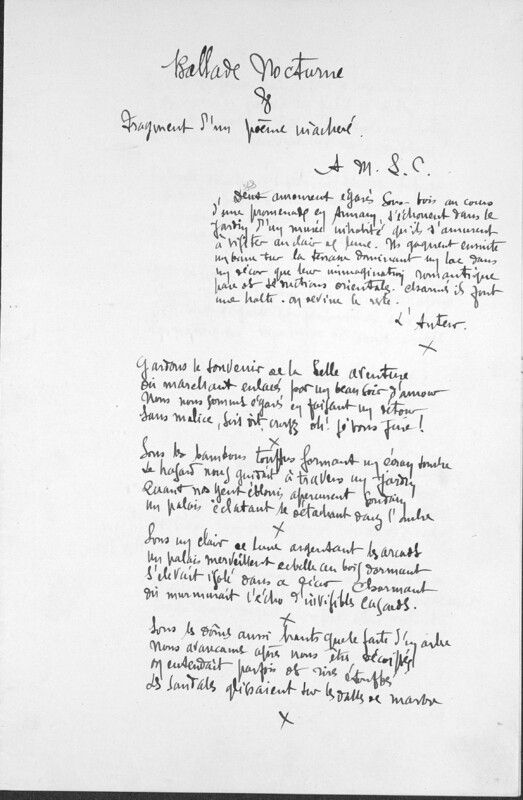 Ballade Nocturne
&
Fragment d'un poëme inachevé.
A M. S. C.
Deux amoureux égarés sous-bois au cours
d'une promenade en Annam, s'échouent dans le
jardin d'un musée inhabité qu'ils s'amusent
à visiter au clair de lune. Ils gagnent ensuite
un banc sur la terrasse dominant un lac dans
un décor que leur immagination romantique
pare de séductions orientales. Charmés ils font
une halte. On devine le reste.
L'Auteur.
X
Gardons le souvenir de la belle aventure
Où marchant enlacés par un beau soir d'amour
Nous nous sommes égarés en faisant un détour
Sans malice, soit dit, croyez oh! je vous jure!
X
Sous les bambous touffus formant un écran sombre
Le hasard nous guidait à travers un jardin
Quand nos yeux éblouis aperçurent soudain
Un palais éclatant se détachant dans l'ombre
X
Sous un clair de lune argentant les arcades
Un palais merveilleux de belle au bois dormant
S'élevait isolé dans ce décor charmant
Où murmurait l'écho d'invisibles cascades.
X
Sous les dômes aussi hauts que le faîte d'un arbre
Nous avançames après nous être
On entendait parfois des rires étouffés
Les sandales glissaient sur les dalles de marbre
X